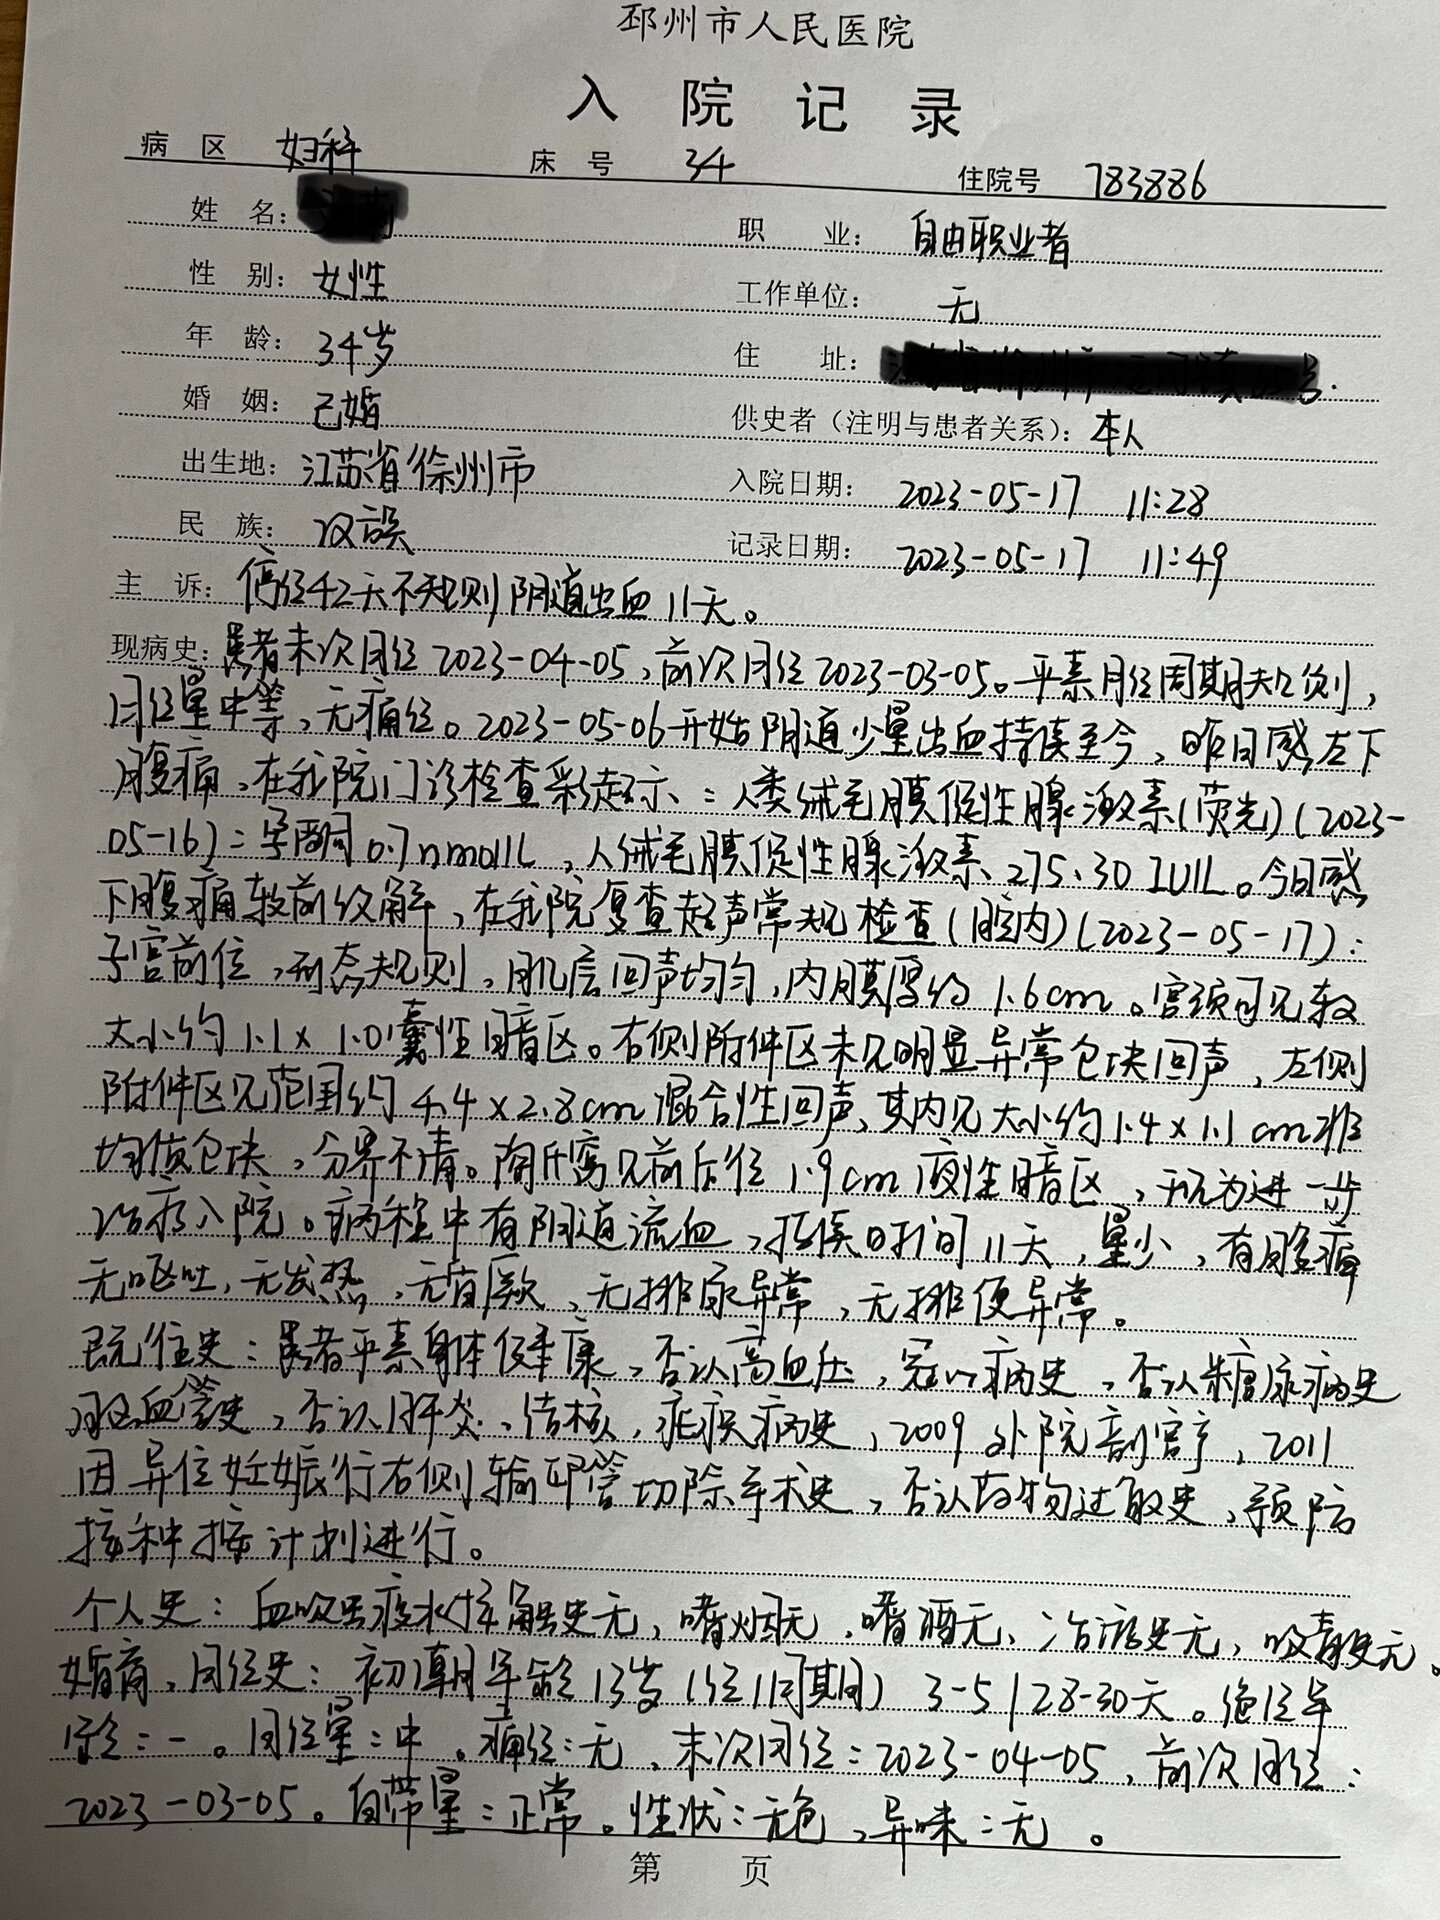 邳州市人民医院
入院记录
病区 妇科 床号 34 住院号 783886
姓名： 职业： 自由职业者
性别： 女性 工作单位： 无
年龄： 34岁 住址：
婚姻： 已婚 供史者（注明与患者关系）： 本人
出生地： 江苏省徐州市 入院日期： 2023-05-17 11:28
民族： 汉族 记录日期： 2023-05-17 11:49
主诉： 停经42天不规则阴道出血11天。
现病史： 患者末次月经2023-04-05，前次月经2023-03-05。平素月经周期规则，
月经量中等，无痛经。2023-05-06开始阴道少量出血持续至今，昨日感左下
腹痛，在我院门诊检查彩超示：人类绒毛膜促性腺激素(荧光)(2023-
05-16)：孕酮0.7nmol/L，人绒毛膜促性腺激素275.30IU/L。今日感
下腹痛较前缓解，在我院复查超声常规检查(腔内)(2023-05-17)：
子宫前位，形态规则，肌层回声均匀，内膜厚约1.6cm。宫颈可见较
大小约1.1×1.0囊性暗区。右侧附件区未见明显异常包块回声，左侧
附件区见范围约4.4×2.8cm混合性回声，其内见大小约1.4×1.1cm非
均质包块，分界不清。陶氏窝见前后径1.9cm液性暗区，现为进一步
治疗入院。病程中有阴道流血，持续时间11天，量少，有腹痛
无呕吐，无发热，无昏厥，无排尿异常，无排便异常。
既往史：患者平素身体健康，否认高血压，冠心病史，否认糖尿病史
脑血管史，否认肝炎、结核，疟疾病史，2009外院剖宫产，2011
因异位妊娠行右侧输卵管切除手术史，否认药物过敏史，预防
接种按计划进行。
个人史：血吸虫疫水接触史无，嗜烟无，嗜酒无，冶游史无，吸毒史无。
婚育、月经史：初潮年龄13岁(经/周期) 3-5/28-30天。绝经年
龄：-。月经量：中。痛经：无，末次月经：2023-04-05，前次月经：
2023-03-05。白带量：正常。性状：无色，异味：无。
第 页